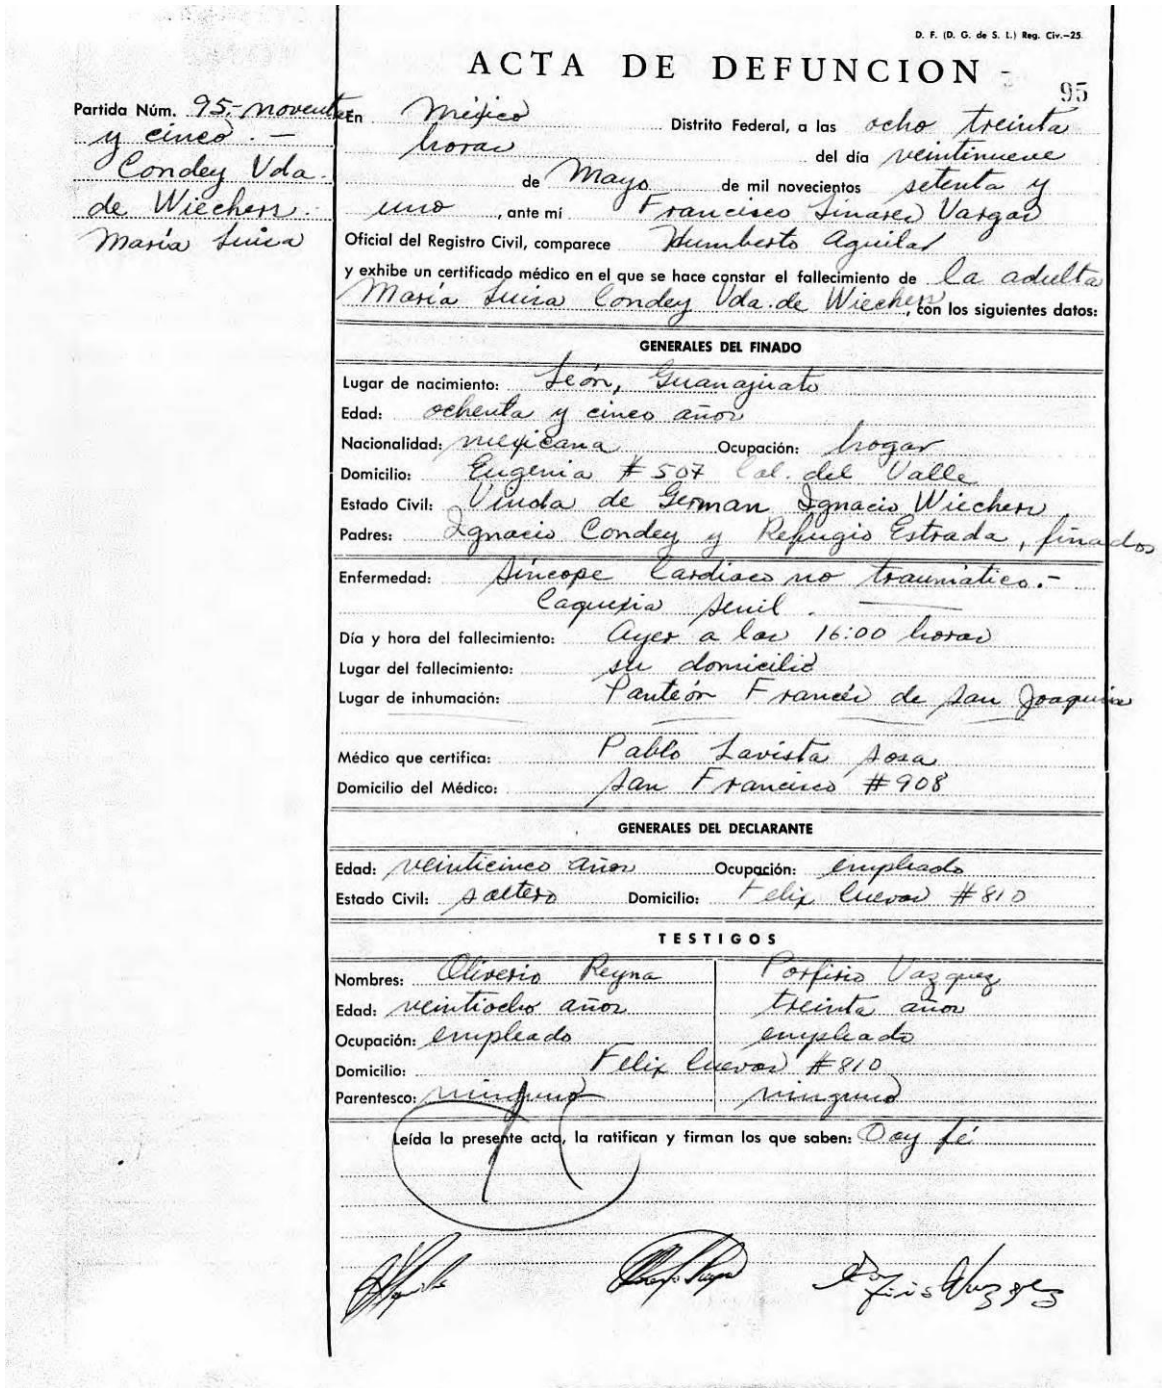 D. F. (D. G. de S. I.) Reg. Civ.-25
ACTA DE DEFUNCION
95
Partida Núm. 95.- noventa
y cinco. -
Condey Vda.
de Wiechers.
María Luisa
En México Distrito Federal, a las ocho treinta
horas del día veintinueve
de Mayo de mil novecientos setenta y
uno, ante mi Francisco Linares Vargas
Oficial del Registro Civil, comparece Humberto Aguilar
y exhibe un certificado médico en el que se hace constar el fallecimiento de la adulta
María Luisa Condey Vda. de Wiechers, con los siguientes datos:
GENERALES DEL FINADO
Lugar de nacimiento: León, Guanajuato
Edad: ochenta y cinco años
Nacionalidad: mexicana Ocupación: hogar
Domicilio: Eugenia # 507 Col. del Valle
Estado Civil: Viuda de German Ignacio Wiechers
Padres: Ignacio Condey y Refugio Estrada, finados
Enfermedad: Síncope Cardiaco no traumático.-
Caquexia senil.
Día y hora del fallecimiento: Ayer a las 16:00 horas
Lugar del fallecimiento: su domicilio
Lugar de inhumación: Panteón Francés de San Joaquin
Médico que certifica: Pablo Lavista Sosa
Domicilio del Médico: San Francisco #908
GENERALES DEL DECLARANTE
Edad: veinticinco años Ocupación: empleado
Estado Civil: soltero Domicilio: Felix Cuevas #810
TESTIGOS
Nombres: Oliverio Reyna Porfirio Vazquez
Edad: veintiocho años treinta años
Ocupación: empleado empleado
Domicilio: Felix Cuevas #810
Parentesco: ninguno ninguno
Leída la presente acta, la ratifican y firman los que saben: Doy fé